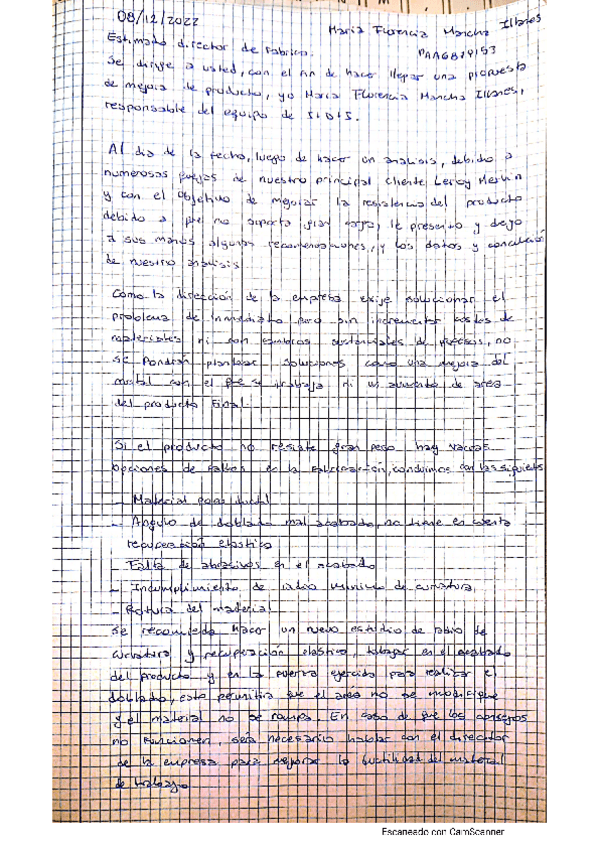 08/12/2022
Maria Florencia Mancha Illanes
Estimado director de Fabrica.
Se dirige a usted, con el fin de hacer llegar una propuesta
de mejora de producto, yo Maria Florencia Mancha Illanes,
responsable del equipo de
Al dia de la fecha, luego de hacer un analisis, debido a
numerosas quejas de nuestro principal cliente Leroy Merlin
y con el objetivo de mejorar la resistencia del producto
debido a que no soporta gran carga, le presento y dejo
a sus manos algunas recomendaciones, y los datos y conclusión
de nuestro analisis
Como la dirección de la empresa exije solucionar el
problema de inmediato pero sin incrementar costos de
materiales ni con cambios sustanciales de, no
se pondran plantear soluciones como una mejora del
metal con el que se trabaja ni un aumento de area
del producto Final
Si el producto no resiste gran peso hay varias
opciones de fallos en la fabricación, concluimos con las siguients
- Material poco ductil
- Angulo de doblado mal acabado, no tiene en cuenta
recuperación elastica
- Falta de abrasivos en el acabado
- Incumplimiento de radio minimo de curvatura,
- Rotura del material
Se recomienda hacer un nuevo estudio de radio de
curvatura y recuperación elastica, trabajar en el acabado
del producto y en la fuerza ejercida para realizar el
doblado, esto permitiria que el area no se modifique
y el material no se rompa. En caso de que los consejos
no funcionen, sera necesario hablar con el director
de la empresa para mejorar la ductilidad del material
de trabajo
Escaneado con CamScanner